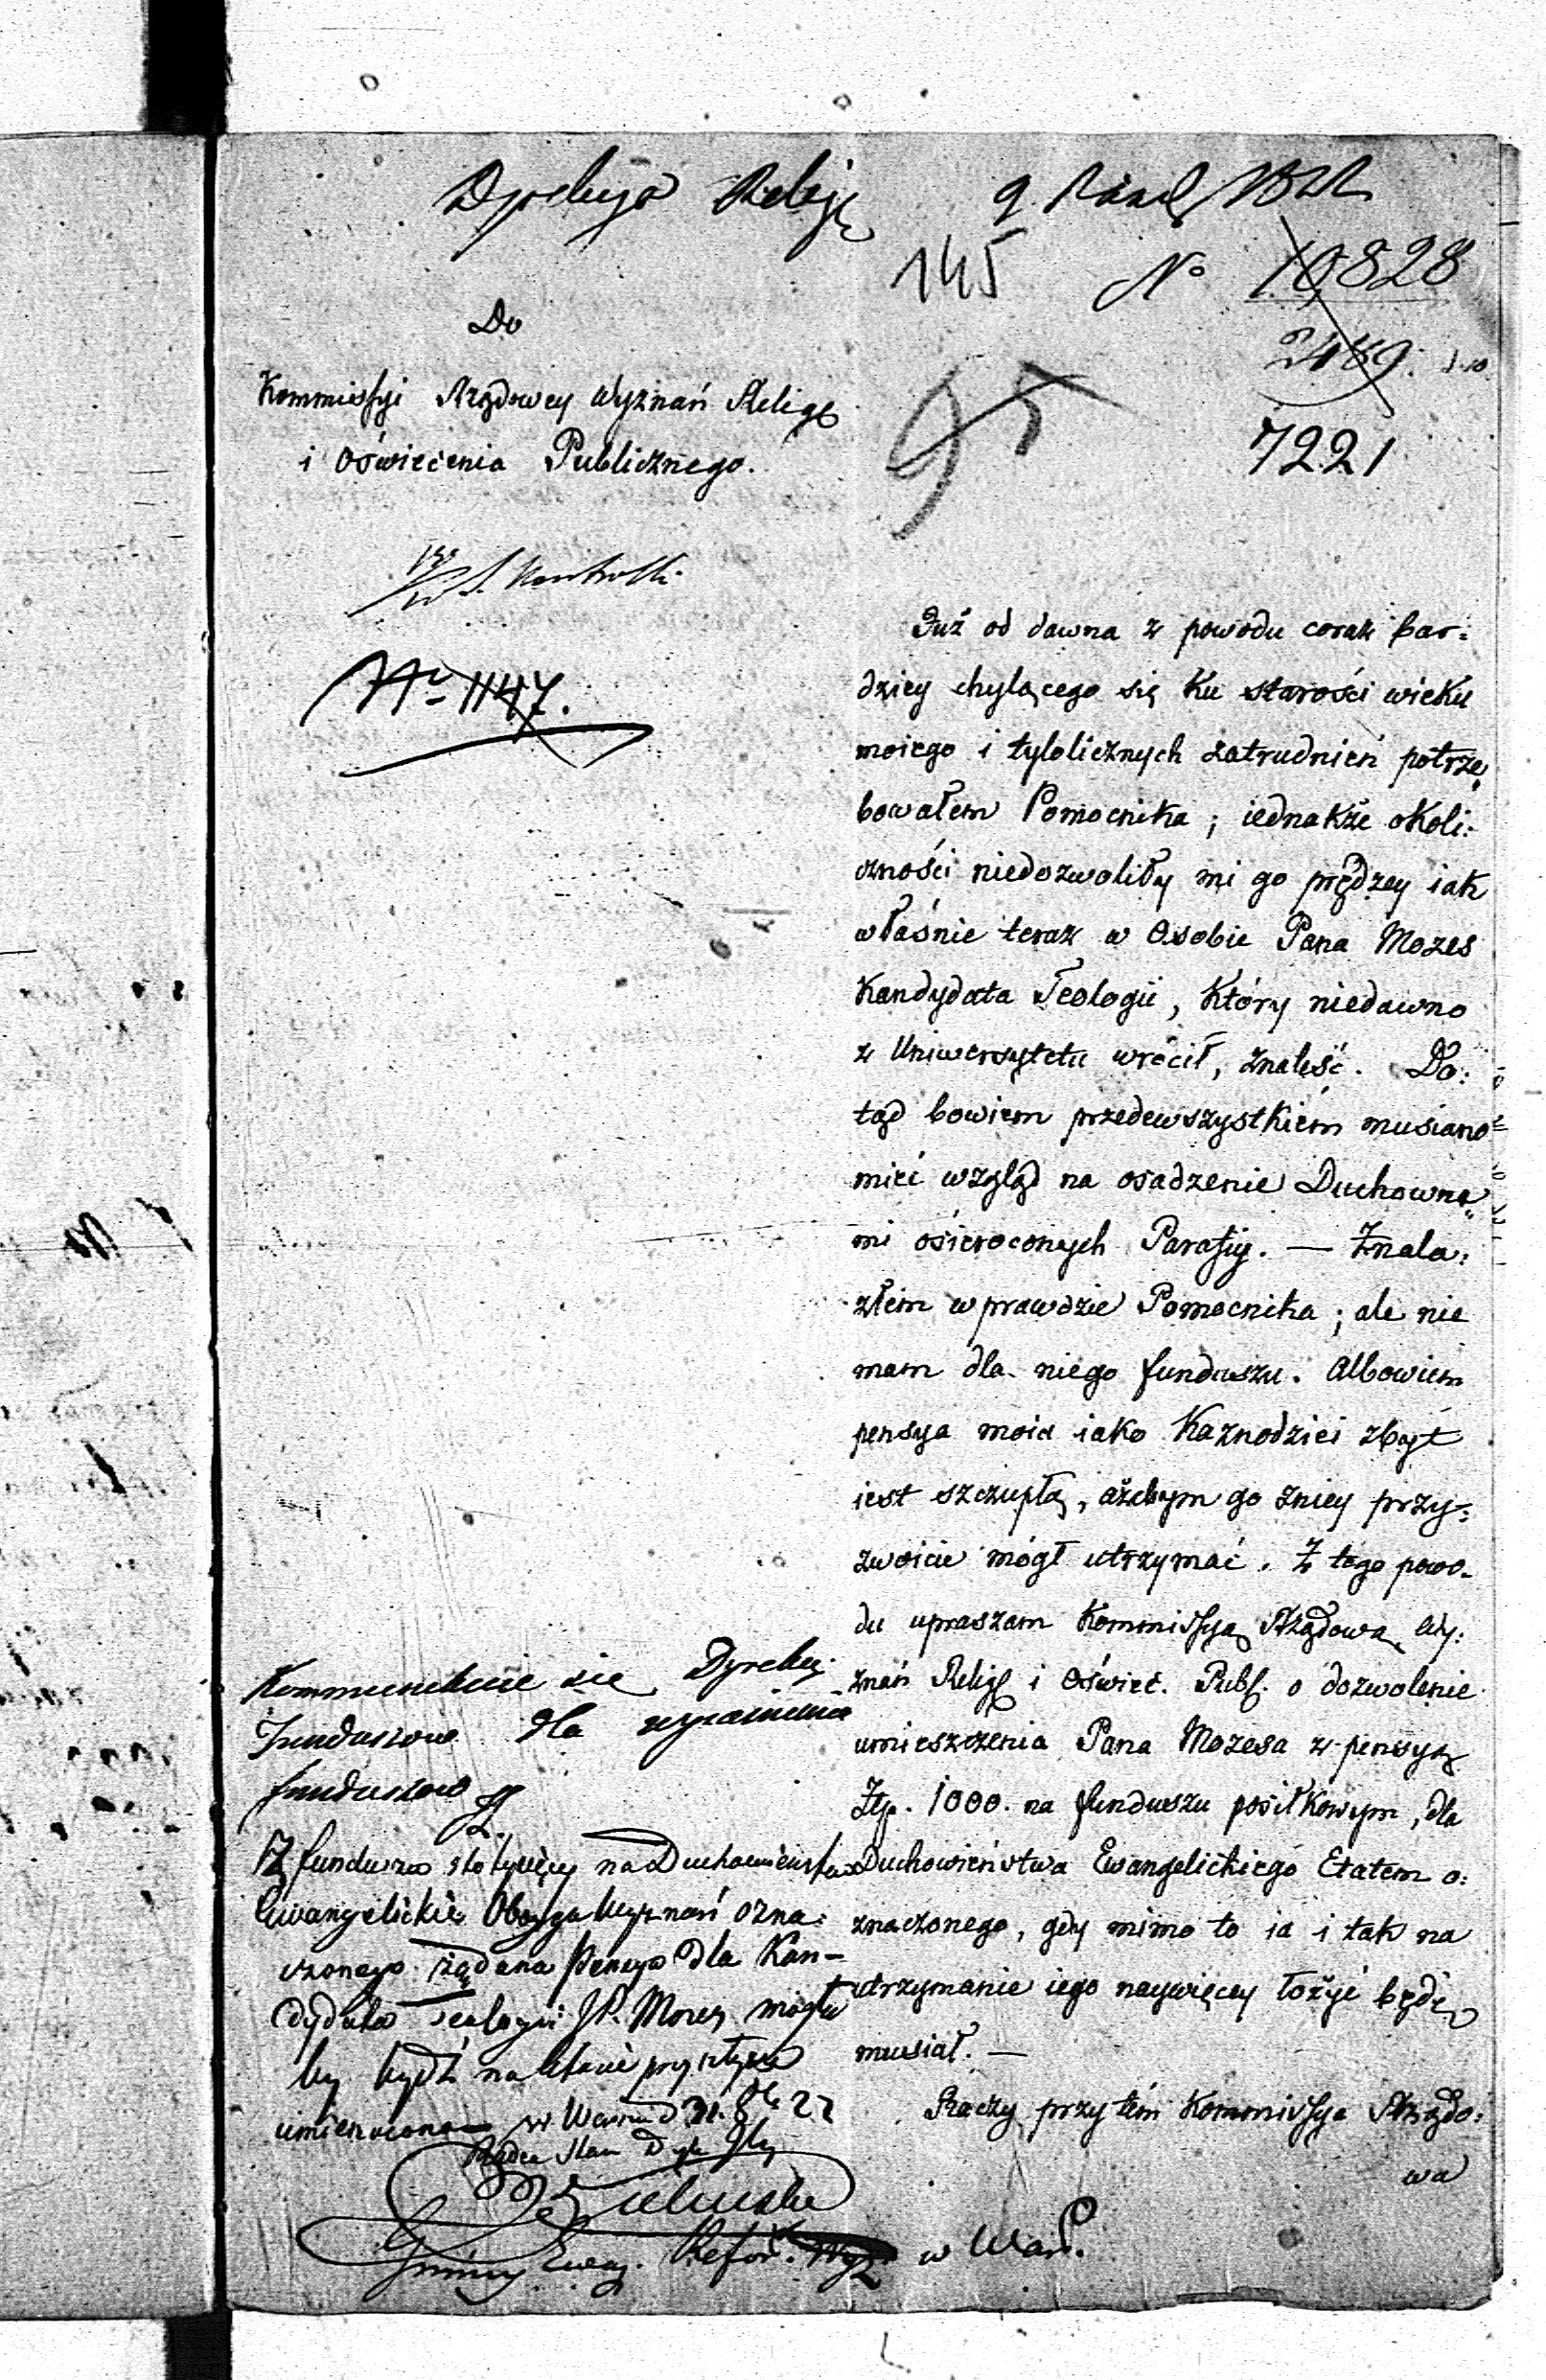 145 N° 10,828
2489.
7221
95
Do
Kommissyi Rządowey Wyznań Relig
i Oświecenia Publicznego.
N° 1147.
Już od dawna z powodu coraz bar:
dziey chylącego się ku starości wieku
moiego i tylolicznych zatrudnień potrze„
bowałem Pomocnika; iednakże okoli:
czności niedozwoliły mi go prędzey iak
właśnie teraz w Osobie Pana Mozes
Kandydata Teologii, który niedawno
z Uniwersytetu wrócił, znaleść. Do:
tąd bowiem przedewszystkiém musiano
mieć wzgląd na osadzenie Duchowne„
mi osieroconych Parafiy. — Znala:
złem wprawdzie Pomocnika; ale nie
mam dla niego funduszu. Albowiem
pensya moia iako Kaznodziei zbyt
iest szczupłą, ażebym go zniey przy:
zwoicie mógł utrzymać. Z tego powo-
du upraszam Kommissyą Rządową Wy:
znań Relig i Oświec. Publ. o dozwolenie
umieszczenia Pana Mozesa z pensyą
Złp. 1000. na funduszu posiłkowym, dla
Duchowieństwa Ewangelickiego Etatem o:
znaczonego, gdy mimo to ia i tak na
utrzymanie iego naywięcey łożyć będę
musiał. —
Raczy przytém Kommissya Rządo:
wa
Kommunikuie się Dyrekcyi
Funduszowe dla wyjaśnienia
funduszow
Z funduszu na Duchowieństwo
Ewangelickie Oboyga Wyznań ozna:
czonego żądana Pensya dla Kan-
dydata Teologii JP. Mozes mogła
by bydź na Etacie przyszłym
umieszczona w Warsz d 31. 8b 22
Radca Stanu
Gminy Ewang. Refor. Wyz w Warsz.